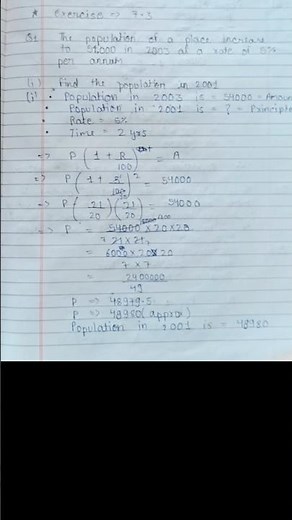 * Exercise => 7.3
Q2 The population of a place increase
to 54000 in 2003 at a rate of 5%
per annum
(i) Find the population in 2001
(i) • Population in 2003 is = 54000 = Amount
• Population in 2001 is = ? = Principle
• Rate = 5%
• Time = 2 yrs
=> P ( 1 + R/100 ) = A
=> P ( 1 + 5/100 )² = 54000
=> P ( 21/20 ) ( 21/20 ) = 54000
=> P = 54000 × 20 × 20
21 × 21
= 6000 × 20 × 20
7 × 7
= 2400000
49
P => 48979.5
P => 48980 (approx)
Population in 2001 is = 48980